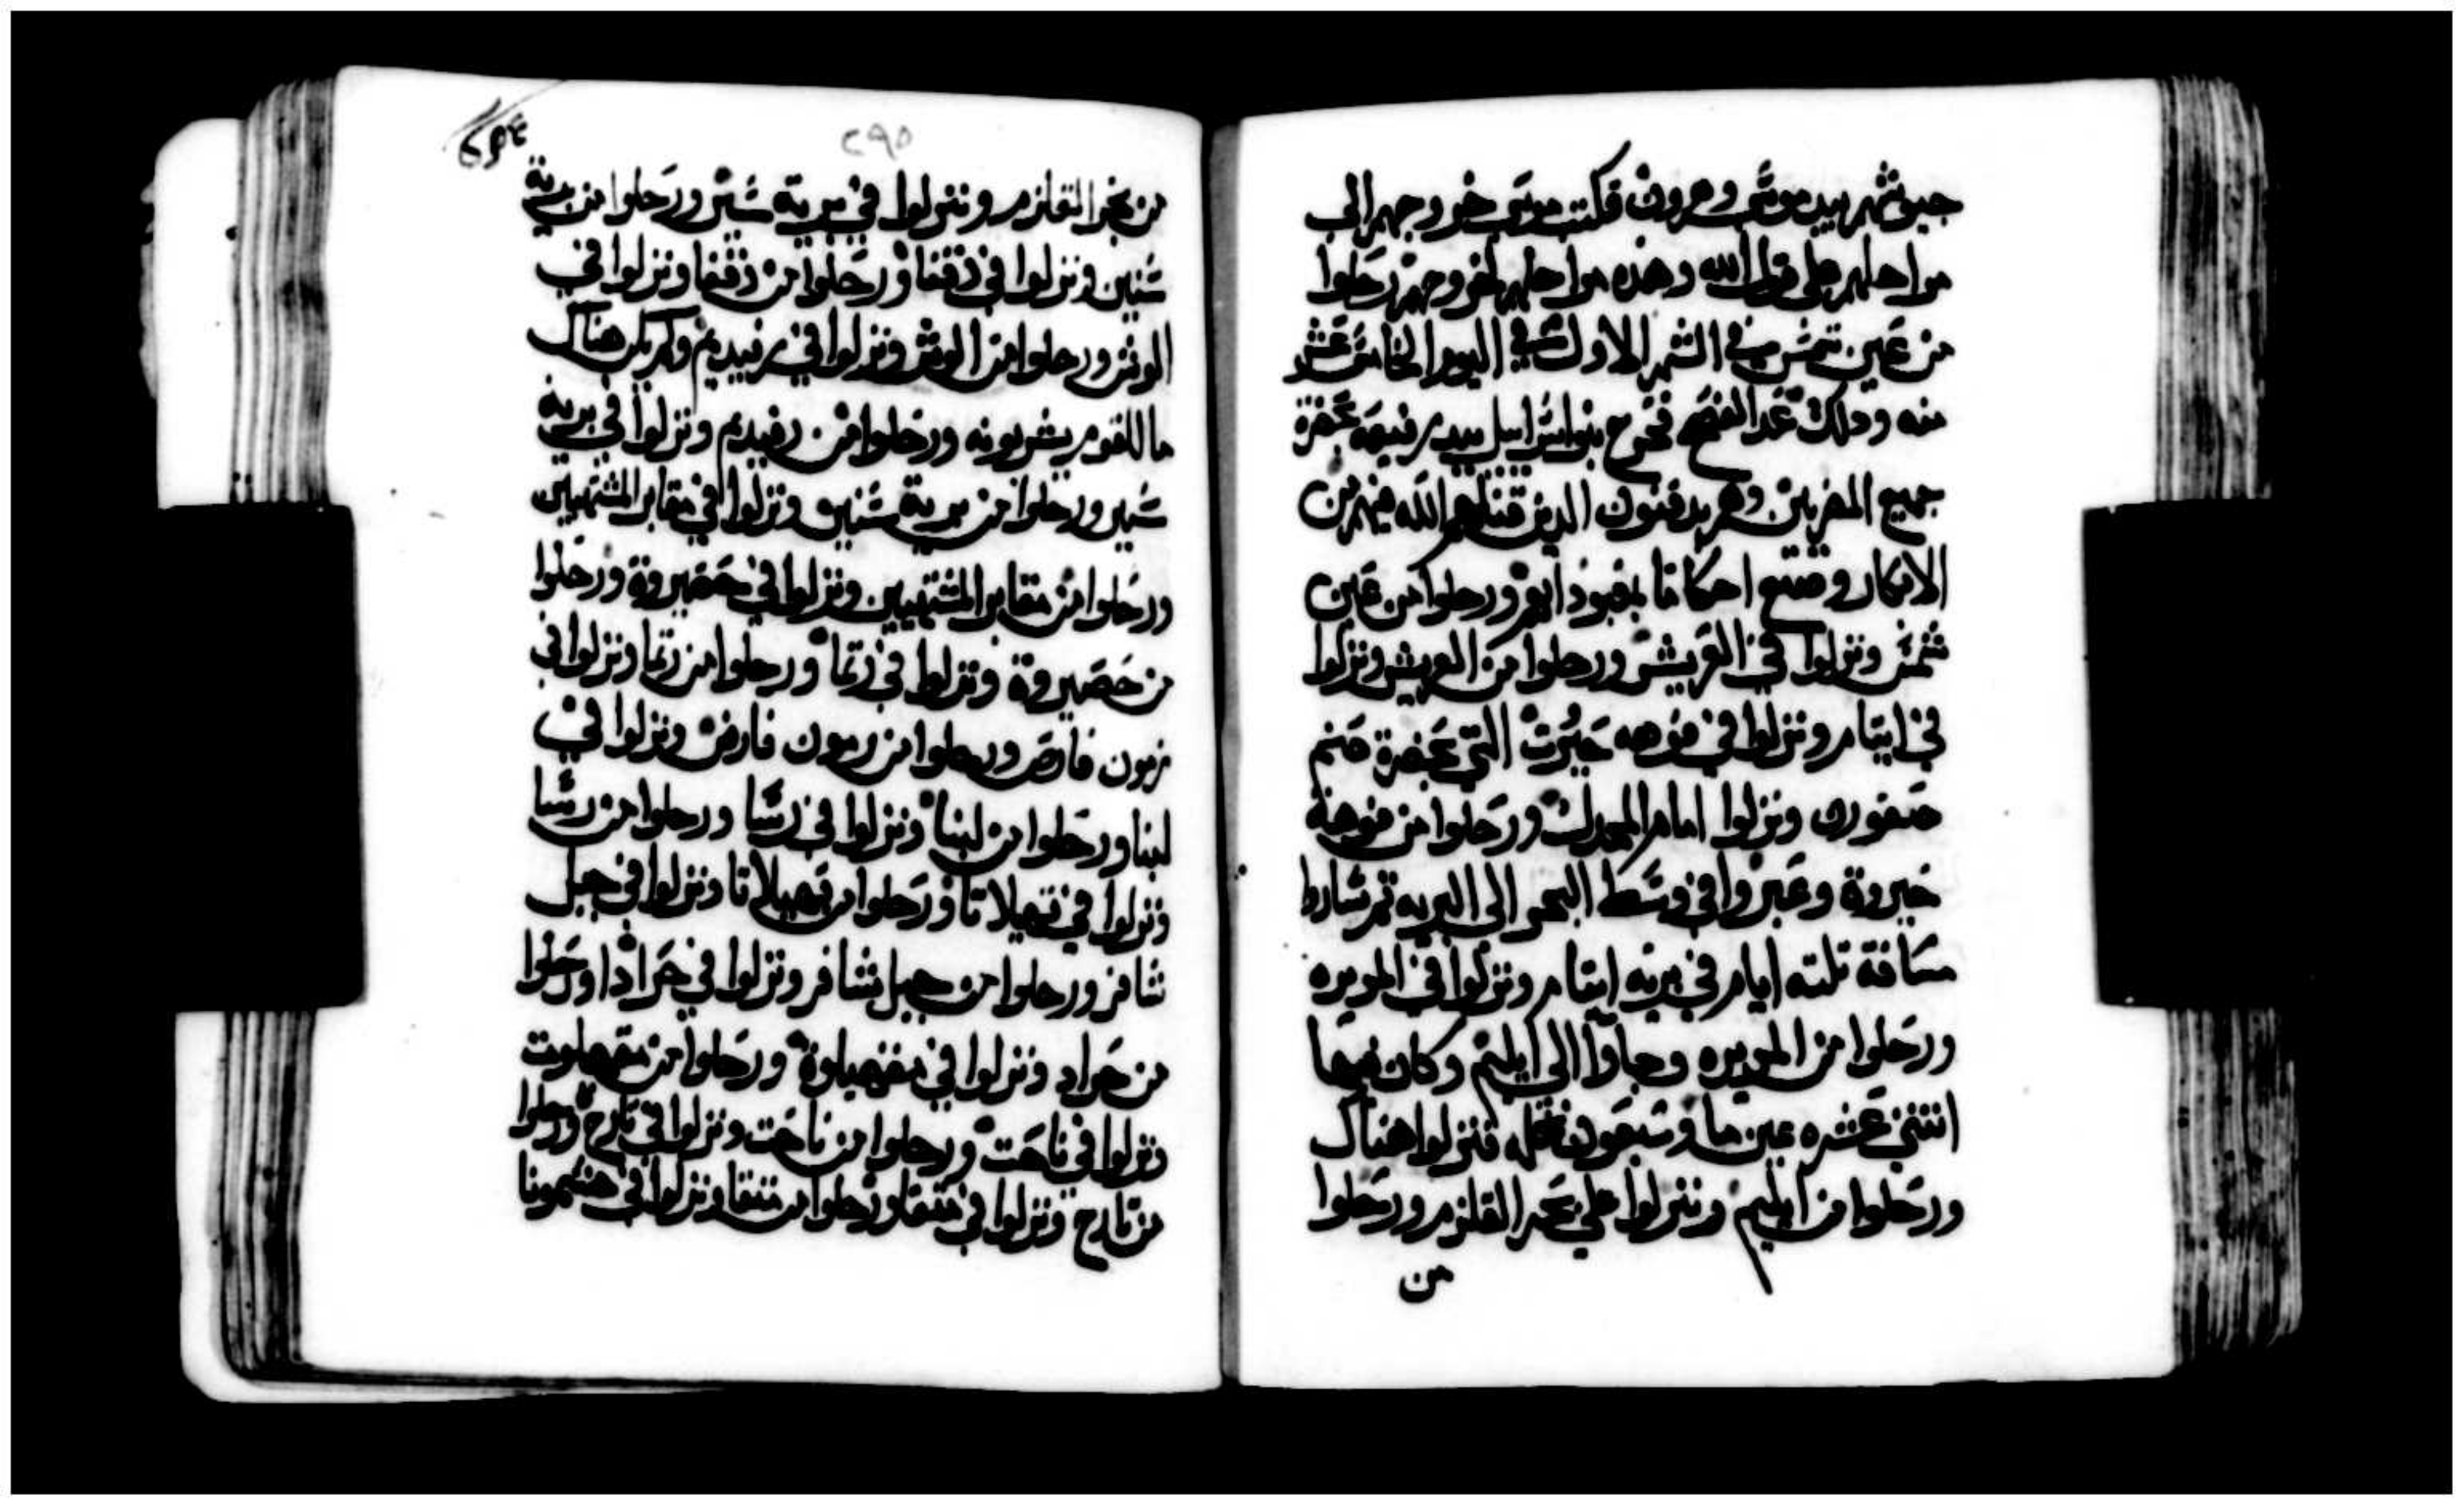 جيوشهم بيد موسى وهرون فكتب موسى خروجهم الى
مراحلهم على قول الله وهذه مراحلهم لخروجهم رحلوا
من عين شمس في الشهر الاول في اليوم الخامس عشر
منه وذلك غد الفصح فخرج بنو اسراييل بيد رفيعه بحضرة
جميع المصريين وهم يدفنون الدين قتلهم الله منهم من
الابكار وصنع احكاما بمعبوداتهم ورحلوا من عين
شمس ونزلوا في العريش ورحلوا من العريش ونزلوا
في ايتام ونزلوا في فوهه حيرث التي بحضرة صنم
صفورى ونزلوا امام المجدل ورحلوا من فوهة
حيروة وعبروا في وسط البحر الى البريه ثم ساروا
مسافة تلته ايام في بريه ايتام ونزلوا في المريره
ورحلوا من المريره وجاوا الى ايليم وكان فيها
اثنتي عشره عين ما وسبعون نخله فنزلوا هناك
ورحلوا من ايليم ونزلوا على بحر القلزم ورحلوا
من
٢٩٥
من بحر القلزم ونزلوا في برية سين ورحلوا من برية
سنين ونزلوا في دفقا ورحلوا من دفقا ونزلوا في
الوش ورحلوا من الوش ونزلوا في رفيديم ولم يكن هناك
ما للقوم يشربونه ورحلوا من رفيديم ونزلوا في برية
سين ورحلوا من برية سنين ونزلوا في مقابر المشتهيين
ورحلوا من مقابر المشتهيين ونزلوا في حصيروة ورحلوا
من حصيروة ونزلوا في رتما ورحلوا من رتما ونزلوا في
رمون فارص ورحلوا من رمون فارص ونزلوا في
لبنا ورحلوا من لبنا ونزلوا في رسا ورحلوا من رسا
ونزلوا في قهيلاتا ورحلوا من قهيلاتا ونزلوا في جبل
شافر ورحلوا من جبل شافر ونزلوا في حرادا ورحلوا
من حراد ونزلوا في مقهيلوة ورحلوا من مقهلوت
ونزلوا في تاحت ورحلوا من تاحت ونزلوا في تارح ورحلوا
من تارح ونزلوا في متقا ورحلوا من متقا ونزلوا في حشمونا